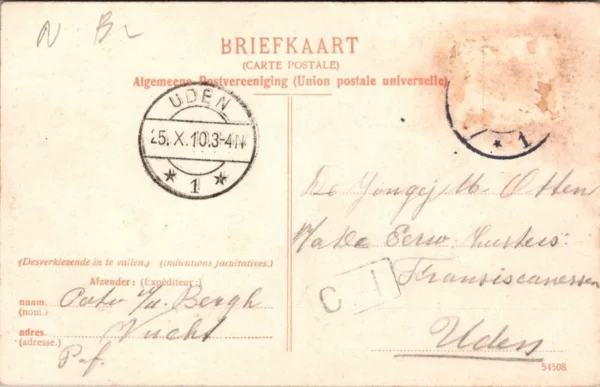 N Br
BRIEFKAART
(CARTE POSTALE)
Algemeene Postvereeniging (Union postale universelle)
UDEN
25.X.10.3-4N
* 1 *
* 1
De Jongej M. Otten
Eerw. Zusters
Fransiscanessen
Uden
C I
(Desverkiezende in te vullen.) (Indications facultatives.)
Afzender: (Expéditeur:)
naam (nom.) v/d. Bergh
adres. (adresse.) Vucht
P.f.
54508